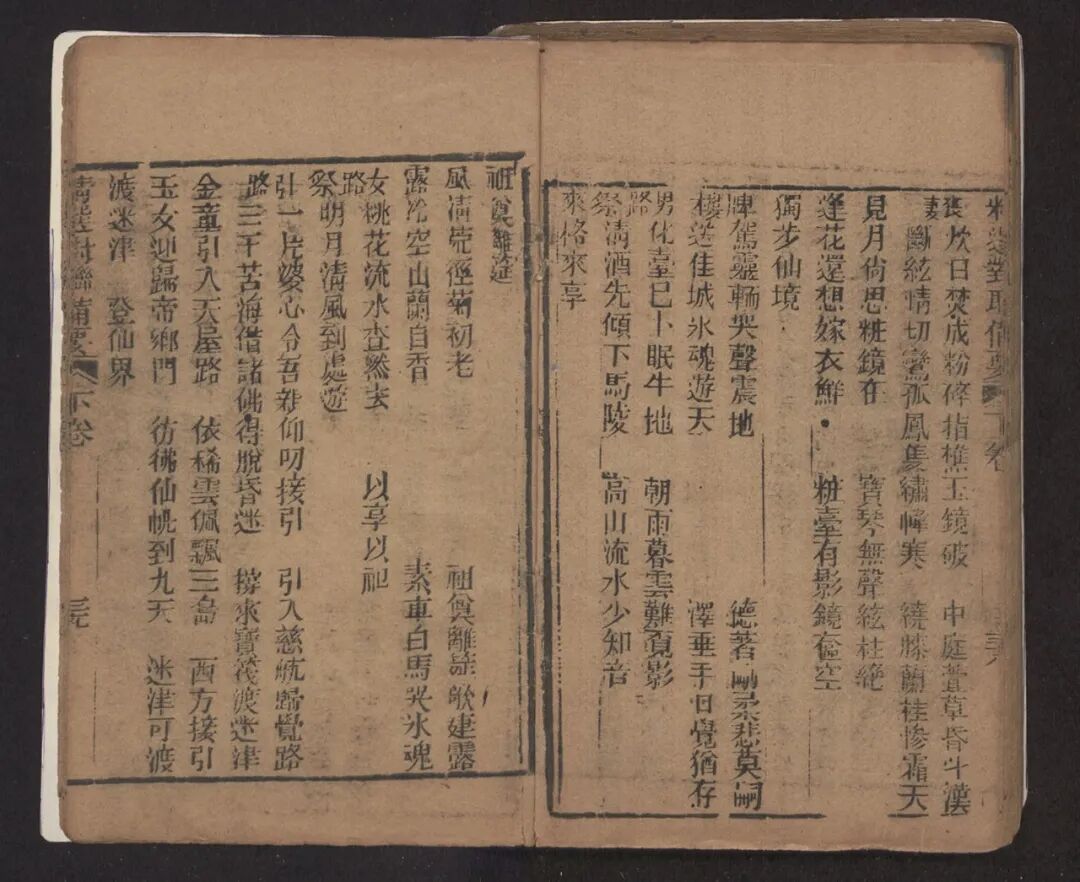 對聯備要 下卷
喪妻 炊臼焚成粉碎指樵玉鏡破 中庭萱草昏斗漢
斷絃情切鸞孤鳳隻繡幃寒 繞膝蘭桂慘霜天
見月尚思粧鏡在 寶琴無聲絃柱絕
逢花還想嫁衣鮮 粧臺有影鏡奩空
獨步仙境
牌 駕靈輀哭聲震地 德著
樓 送佳城氷魂遊天 澤垂于日覺猶存
男化臺 已卜眠牛地 朝雨暮雲難覓影
路祭 清酒先傾下馬陵 高山流水少知音
來格來享
祖奠離筵
風淸荒徑菊初老 祖奠離 歌建露
露冷空山蘭自香 素車白馬哭氷魂
女路祭 桃花流水杳然去 以享以祀
明月淸風到處遊
引路 一片婆心令吾雜仰叨接引 引入慈航歸覺路
三千苦海借諸佛得脫昏迷 撐來寶筏渡迷津
金童引入天屋路 依稀雲佩飄三島 西方接引
玉女迎歸帝鄉門 彷彿仙幌到九天 迷津可渡
渡迷津 登仙界
對聯備要 下卷 三元